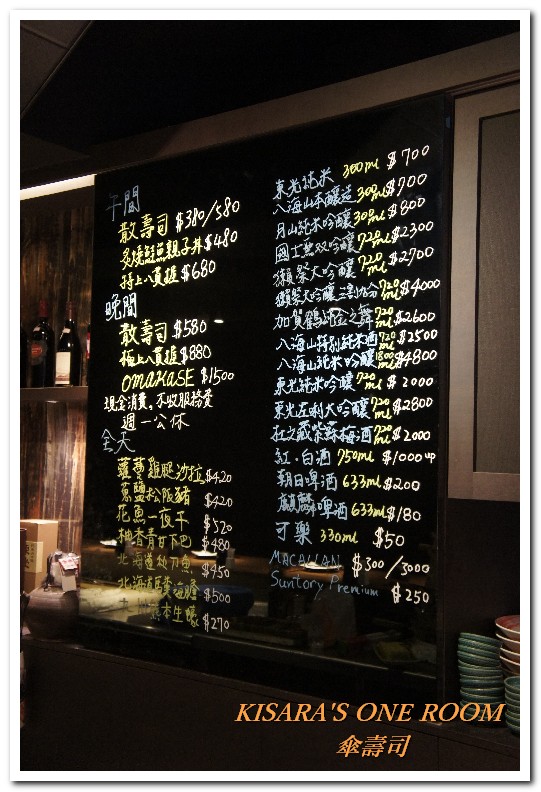 午間
散壽司 $380/580
炙燒鮭魚親子丼 $480
特上八貫握 $680
晚間
散壽司 $580
極上八貫握 $880
OMAKASE $1500
現金消費,不收服務費
週一公休
全天
蘿蔓雞腿沙拉 $420
蔥鹽松阪豬 $420
花魚一夜干 $520
柚香青甘下巴 $480
北海道秋刀魚 $450
北海道 $500
生蠔 $270
東光純米 300ml $700
八海山本釀造 300ml $700
月山純米吟釀 300ml $800
國士無双吟釀 720ml $2300
獺祭大吟釀 720ml $2700
獺祭大吟釀 三割九分 720ml $4000
加賀鶴 金之舞 720ml $2600
八海山特別純米酒 720ml $2500
八海山純米吟釀 1800ml $4800
東光純米吟釀 720ml $2000
東光左利大吟釀 720ml $2800
紫蘇梅酒 720ml $2000
紅.白酒 750ml $1000up
朝日啤酒 633ml $200
麒麟啤酒 633ml $180
可樂 330ml $50
MACALLAN $300/3000
Suntory Premium $250
KISARA'S ONE ROOM
傘壽司